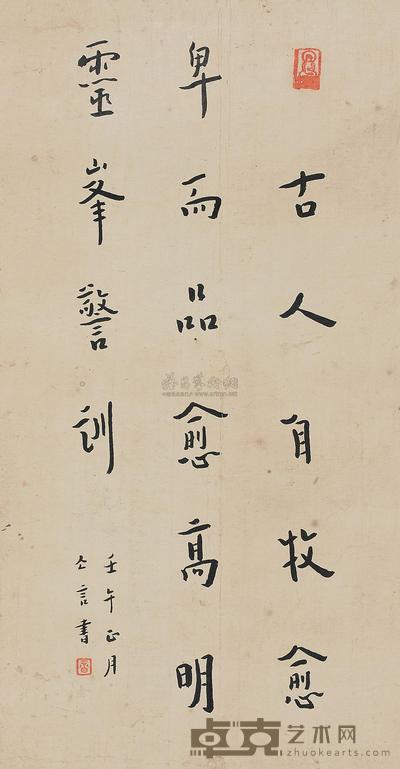 古人自牧愈
卑而品愈高明
靈峯警訓
壬午正月
亡言書
卓克艺术网
zhuokearts.com